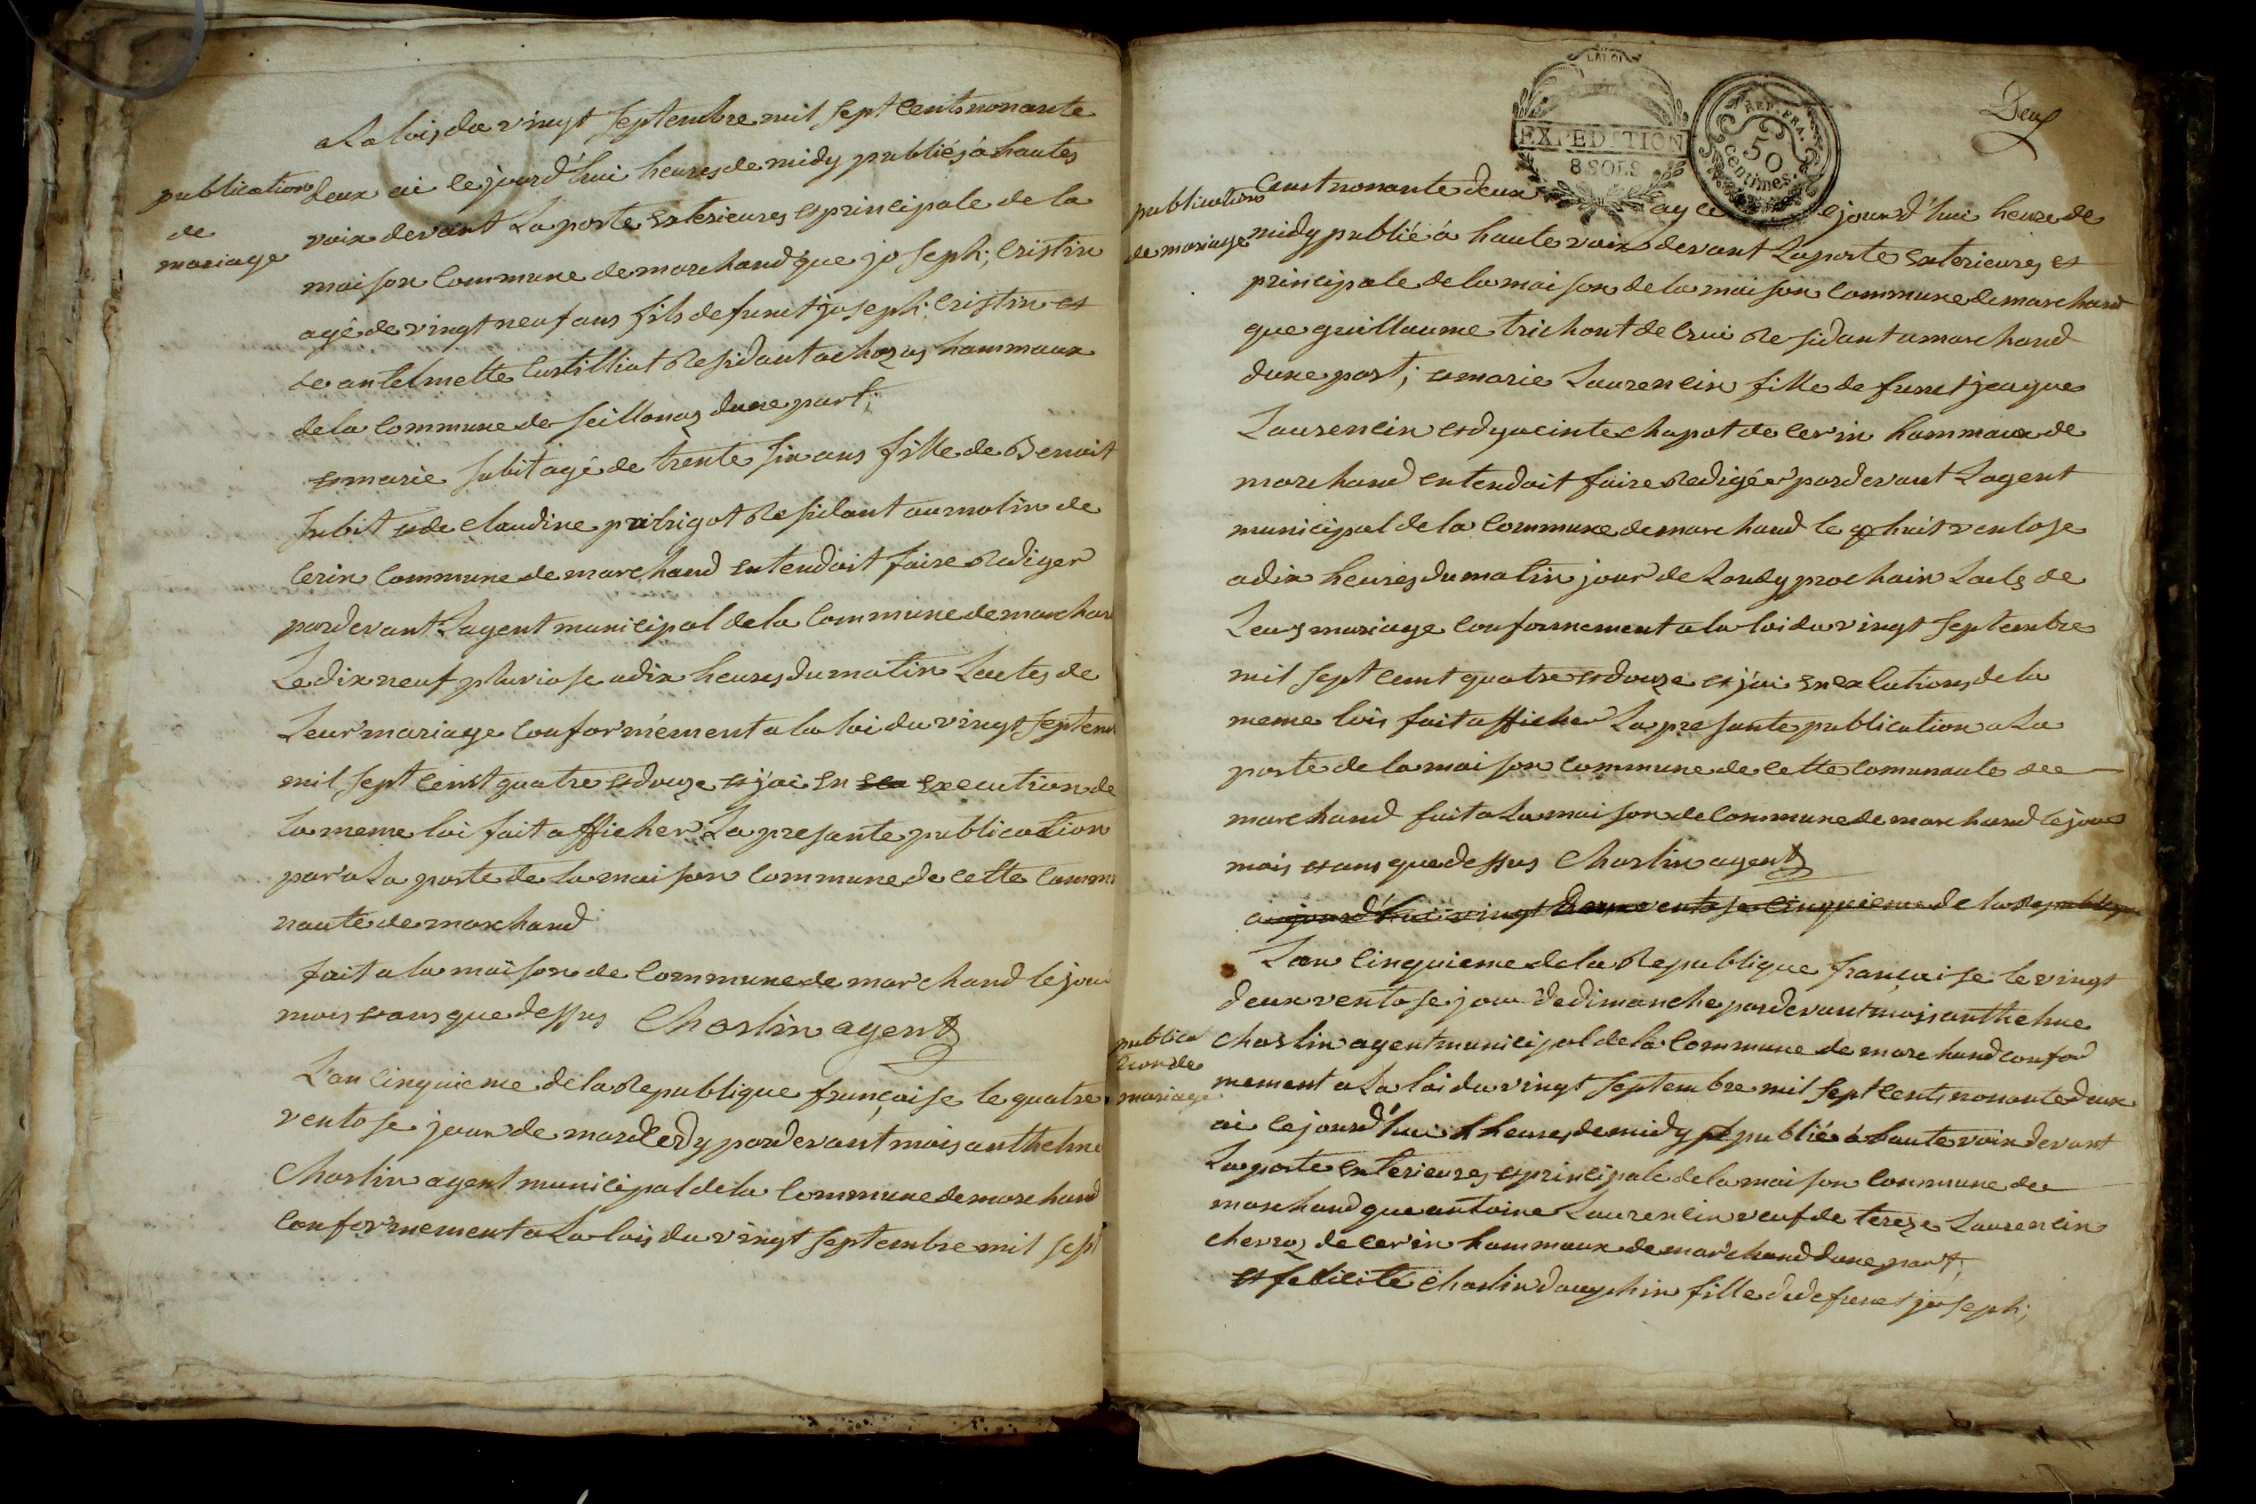 a La lois du vingt septembre mil sept cents nonante
publication
de
mariage
deux ai le jourd'hui heures de midy publiés à hautes
voix devant La porte exterieures et principale de la
maison Commune de marchand que joseph; Cristin
agé de vingt neuf ans fils de funct joseph; Cristin et
de antelmette Custilliat Residant a chozas hammaux
de la Commune de Seillonaz dune part;
et marie Subit agé de trente six ans fille de Benoit
Subit et de Claudine pitrigot Residant au molin de
Cerin Commune de marchand entendoit faire Rediger
pardevant L'agent municipal de la Commune de marchan
Le dix neuf pluviose a dix heures du matin L'actes de
Leur mariage Conformément a la loi du vingt septem
mil sept cent quatre et douze et j'ai en execution de
la meme loi fait afficher La presante publication
par a La porte de La maison Commune de cette Commu
naute de marchand
fait a la maison de Commune de marchand le jour
mois et ans que dessus Charlin agent
L'an Cinquieme de la Republique française le quatre
ventose jour de mardy pardevant mois anthelme
Charlin agent municipal de la Commune de marchand
Conformement a La lois du vingt septembre mil sept
LA LOI
EXPEDITION
8 SOLS
REP. FRA.
50
centimes.
Deux
publications
de mariage
Cent nonante deux ay le jourd'hui heure de
midy publié à haute voix devant La porte exterieures et
principale de la maison de la maison Commune de marchand
que guillaume trichont de Crui Residant a marchand
dune part; et marie Laurencin fille de funct jaque
Laurencin et dyacinte chapot de Cerin hammaux de
marchand entendoit faire Redigér pardevant L'agent
municipal de la Commune de marchand le huit ventose
a dix heures du matin jour de Landy prochain L'acte de
Leurs mariage Conformement a la loi du vingt septembre
mil sept cent quatre et douze et j'ai en exlutions de la
meme lois fait afficher La presante publication a La
porte de la maison Commune de Cette Comunaute de
marchand fait a La maison de Commune de marchand le jour
mois et ans que dessus Charlin agent
aujourd'hui vingt deux ventose Cinquieme de la Republique
L'an Cinquieme de la Republique française le vingt
deux ventose jour de dimanche pardevant mois anthelme
publica
tion de
mariage
Charlin agent municipal de la Commune de marchand confor
mement a La loi du vingt septembre mil sept cents nonante deux
ai le jourd'hui heures de midy publié à haute voix devant
La porte exterieures et principale de la maison Commune de
marchand que antoine Laurencin veuf de tereze Laurencin
cherroz de Cerin hammaux de marchand dune part;
et felicité Charlin dauphin fille du de funct joseph;